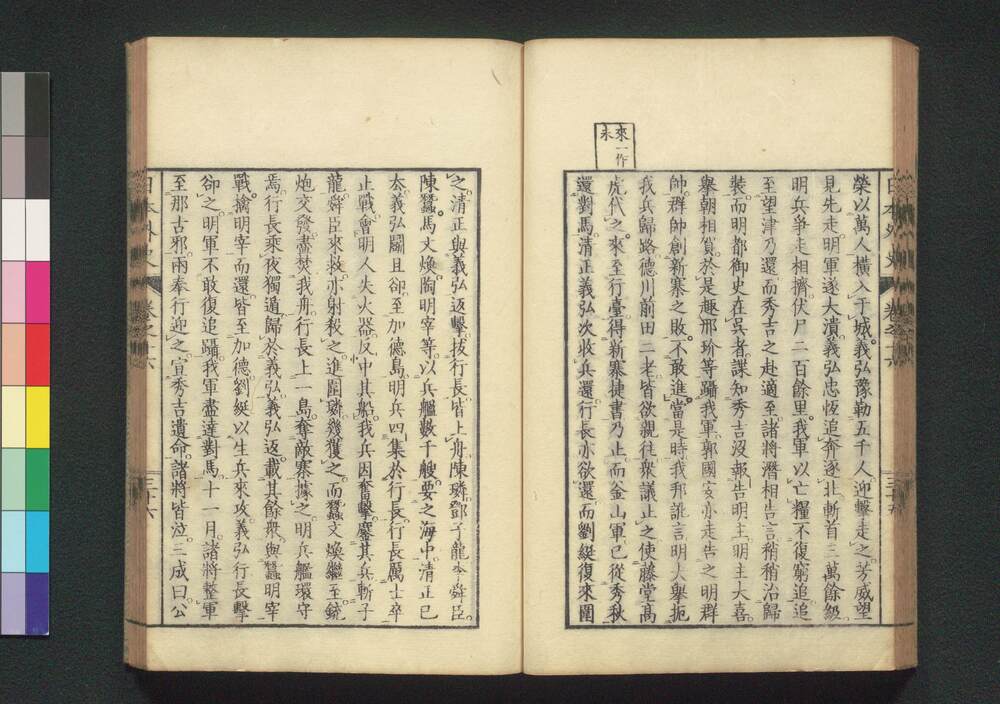 來一作
未
榮以萬人橫入于城義弘豫勒五千人迎擊走之芳威望
見先走明軍遂大潰義弘忠恆追奔逐北斬首三萬餘級
明兵爭走相擠伏尸二百餘里我軍以亡糧不復窮追追
至望津乃還而秀吉之赴適至諸將潛相告言稍稍治歸
裝而明都御史在吳者諜知秀吉沒報告明主明主大喜
舉朝相賀於是趣邢玠等躡我軍郭國安亦走告之明群
帥群帥創新寨之敗不敢進當是時我邦訛言明大舉扼
我兵歸路德川前田二老皆欲親往衆議止之使藤堂高
虎代之來至行臺得新寨捷書乃止而金山軍已從秀秋
還對馬清正義弘次收兵還行長亦欲還而劉綎復來圍
日本外史 卷之十六 三十五
之清正與義弘返擊拔行長皆上舟陳璘鄧子龍李舜臣
陳蠶馬文煥陶明宰等以兵艦數千艘要之海中清正已
去義弘鬪且卻至加德島明兵四集於行長行長厲士卒
止戰會明人失火器反中其船我兵因奮擊鏖其兵斬子
龍舜臣來救亦射殺之進圍璘幾獲之而蠶文煥繼至銃
炮交發盡焚我舟行長上一島奪敵寨據之明兵艦環守
焉行長乘夜獨遁歸於義弘義弘返載其餘衆與蠶明宰
戰擒明宰而還皆至加德劉綎以生兵來攻義弘行長擊
卻之明軍不敢復追躡我軍盡達對馬十一月諸將整軍
至那古邪兩奉行迎之宣秀吉遺命諸將皆泣三成曰公
日本外史 卷之十六 三十六